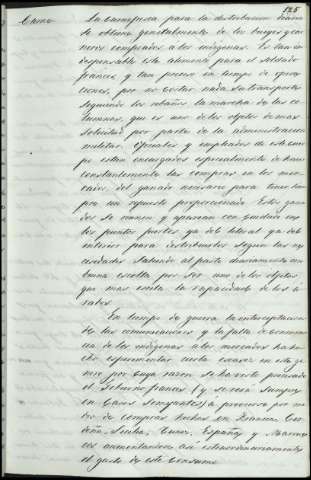 125
Carne
La carne fresca para la distribucion diaria
se obtiene generalmente de los bueyes y car
neros comprados a los indigenas. Es tan in
dispensable este alimento para el soldado
frances, y tan precioso en tiempo de opera
ciones, por no costar nada su transporte
siguiendo los rebaños la marcha de las co
lumnas, que es uno de los objetos de mas
solicitud por parte de la administracion
militar. Oficiales y empleados de este cuer
po estan encargados especialmente de hacer
constantemente las compras en los mer
cados del ganado necesario para tener siem
pre un repuesto proporcionado. Estos gana
dos se reunen y apacentan con cuidado en
los puntos fuertes ya del litoral ya del
interior para distribuirlos segun las ne
cesidades saliendo al pasto diariamente con
buena escolta por ser uno de los objetos
que mas excita la rapacidad de los á
rabes.
En tiempo de guerra la interceptacion
de las comunicaciones y la falta de concurren
cia de los indigenas a los mercados ha he
cho esperimentar cierta escasez en este ge
nero por cuya razon se ha visto precisado
el Gobierno frances (y se vera siempre
en casos semejantes) á proveerse por me
dio de compras hechas en Francia, Cer
deña, Sicilia, Tunez, España y Marrue
cos aumentandose asi extraordinariamente
el gasto de este consumo.